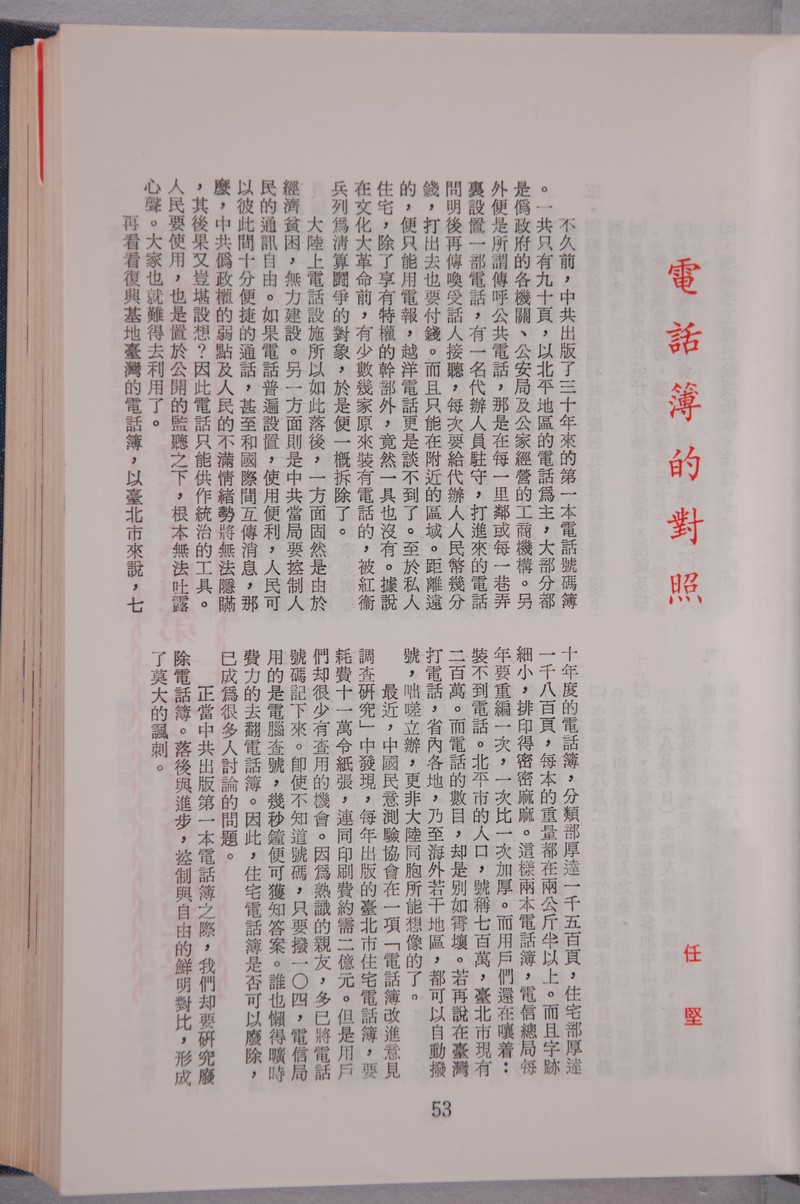 電話簿的對照
任堅
不久前，中共出版了三十年來的第一本電話號碼簿
。一共只有九十頁，以北平地區的電話爲主，大部分都
是僞政府的各機關、公安局及公家經營的工商機構。另
外便是所謂傳呼公共電話，那是在每一里鄰或每一巷弄
裏設置一部電話，有一名代辦人員駐守，打進來的電話
問明後再傳喚受話人接聽，每次要給代辦人人民幣幾分
錢，打出去也要付錢。而且只能在附近的區域。距離遠
的，便只能用電報，越洋電話更是談不到了。至於私人
住宅，除了享有特權的幹部外，竟然一具也沒有。據說
在文化大革命前，有少數幾家原來裝有電話的，被紅衞
兵列爲清算鬪爭的對象，於是便一概拆除了。
大陸上電話設施所以如此落後，一方面固然是由於
經濟貧困，無力建設。另一方面則是中共當局要控制人
民的通訊自由。如果電話普遍設置，使用便利，人民可
以彼此間十分便捷的通話，甚至和國際間互傳消息，那
麼，中共僞政權的弱點及人民的不滿情緒勢將無法隱瞞
，其後果又豈堪設想？因此電話只能供作統治的工具。
人民要使用，也是置於公開的監聽之下，根本無法吐露
心聲。大家也就難得去利用了。
再看看復興基地臺灣的電話簿，以臺北市來說，七
十年度的電話簿，分類部厚達一千五百頁，住宅部厚達
一千八百頁，每本的重量都在兩公斤半以上。而且字跡
細小，排印得密密麻麻。這樣兩本電話簿，電信總局每
年要重編一次，一次比一次加厚。而用戶們還在嚷着：
裝不到電話。北平市的人口，號稱七百萬，臺北市現有
二百萬。而電話的數目，却是別如霄壤。若再說在臺灣
打電話，省內各地，乃至海外若干地區，都可以自動撥
號，咄嗟立辦，更非大陸同胞所能想像的了。
最近，中國民意測驗協會在一項「電話簿改進意見
調查研究」中發現，每年出版的臺北市住宅電話簿，要
耗費十一萬令紙張，連同印刷費約需二億元。但是用戶
們却很少有查用的機會。因爲熟識的親友，多已將電話
號碼記下來。卽使不知道號碼，只要撥一〇四，電信局
用的是電腦查號，幾秒鐘便可獲知答案。誰也懶得曠時
費力的去翻電話簿。因此，住宅電話簿是否可以廢除，
已成爲很多人討論的問題。
正當中共出版第一本電話簿之際，我們却要研究廢
除電話簿。落後與進步，控制與自由的鮮明對比，形成
了莫大的諷刺。
53